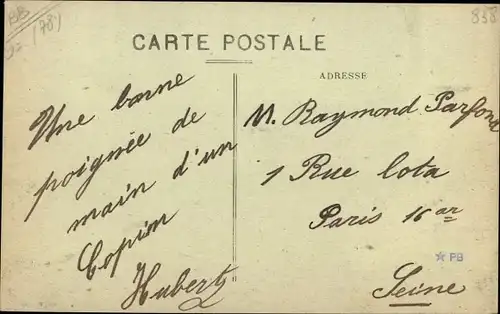 BB
(78)
838
CARTE POSTALE
ADRESSE
Une bonne
poignée de
main d'un
Copain
Hubert
M. Raymond Parfone
1 Rue Cota
Paris 16 ar
PB
Seine